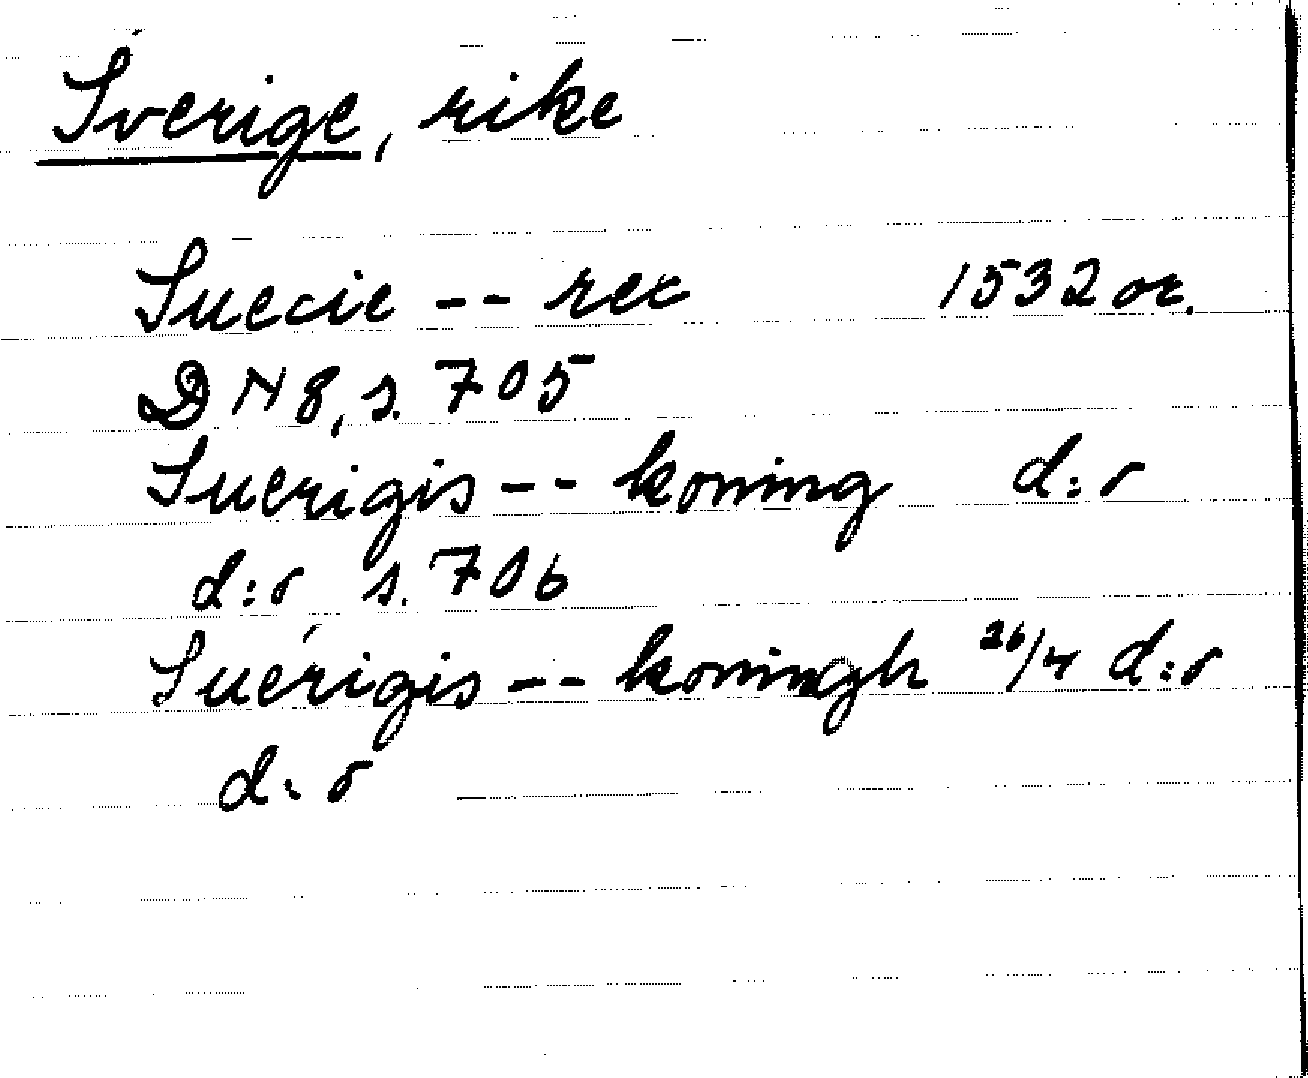 Sverige, rike
Suecie -- rex 1532 or.
DN 8, s. 705
Suerigis -- koning d:o
d:o s. 706
Suerigis -- koningh 26/4 d:o
d:o